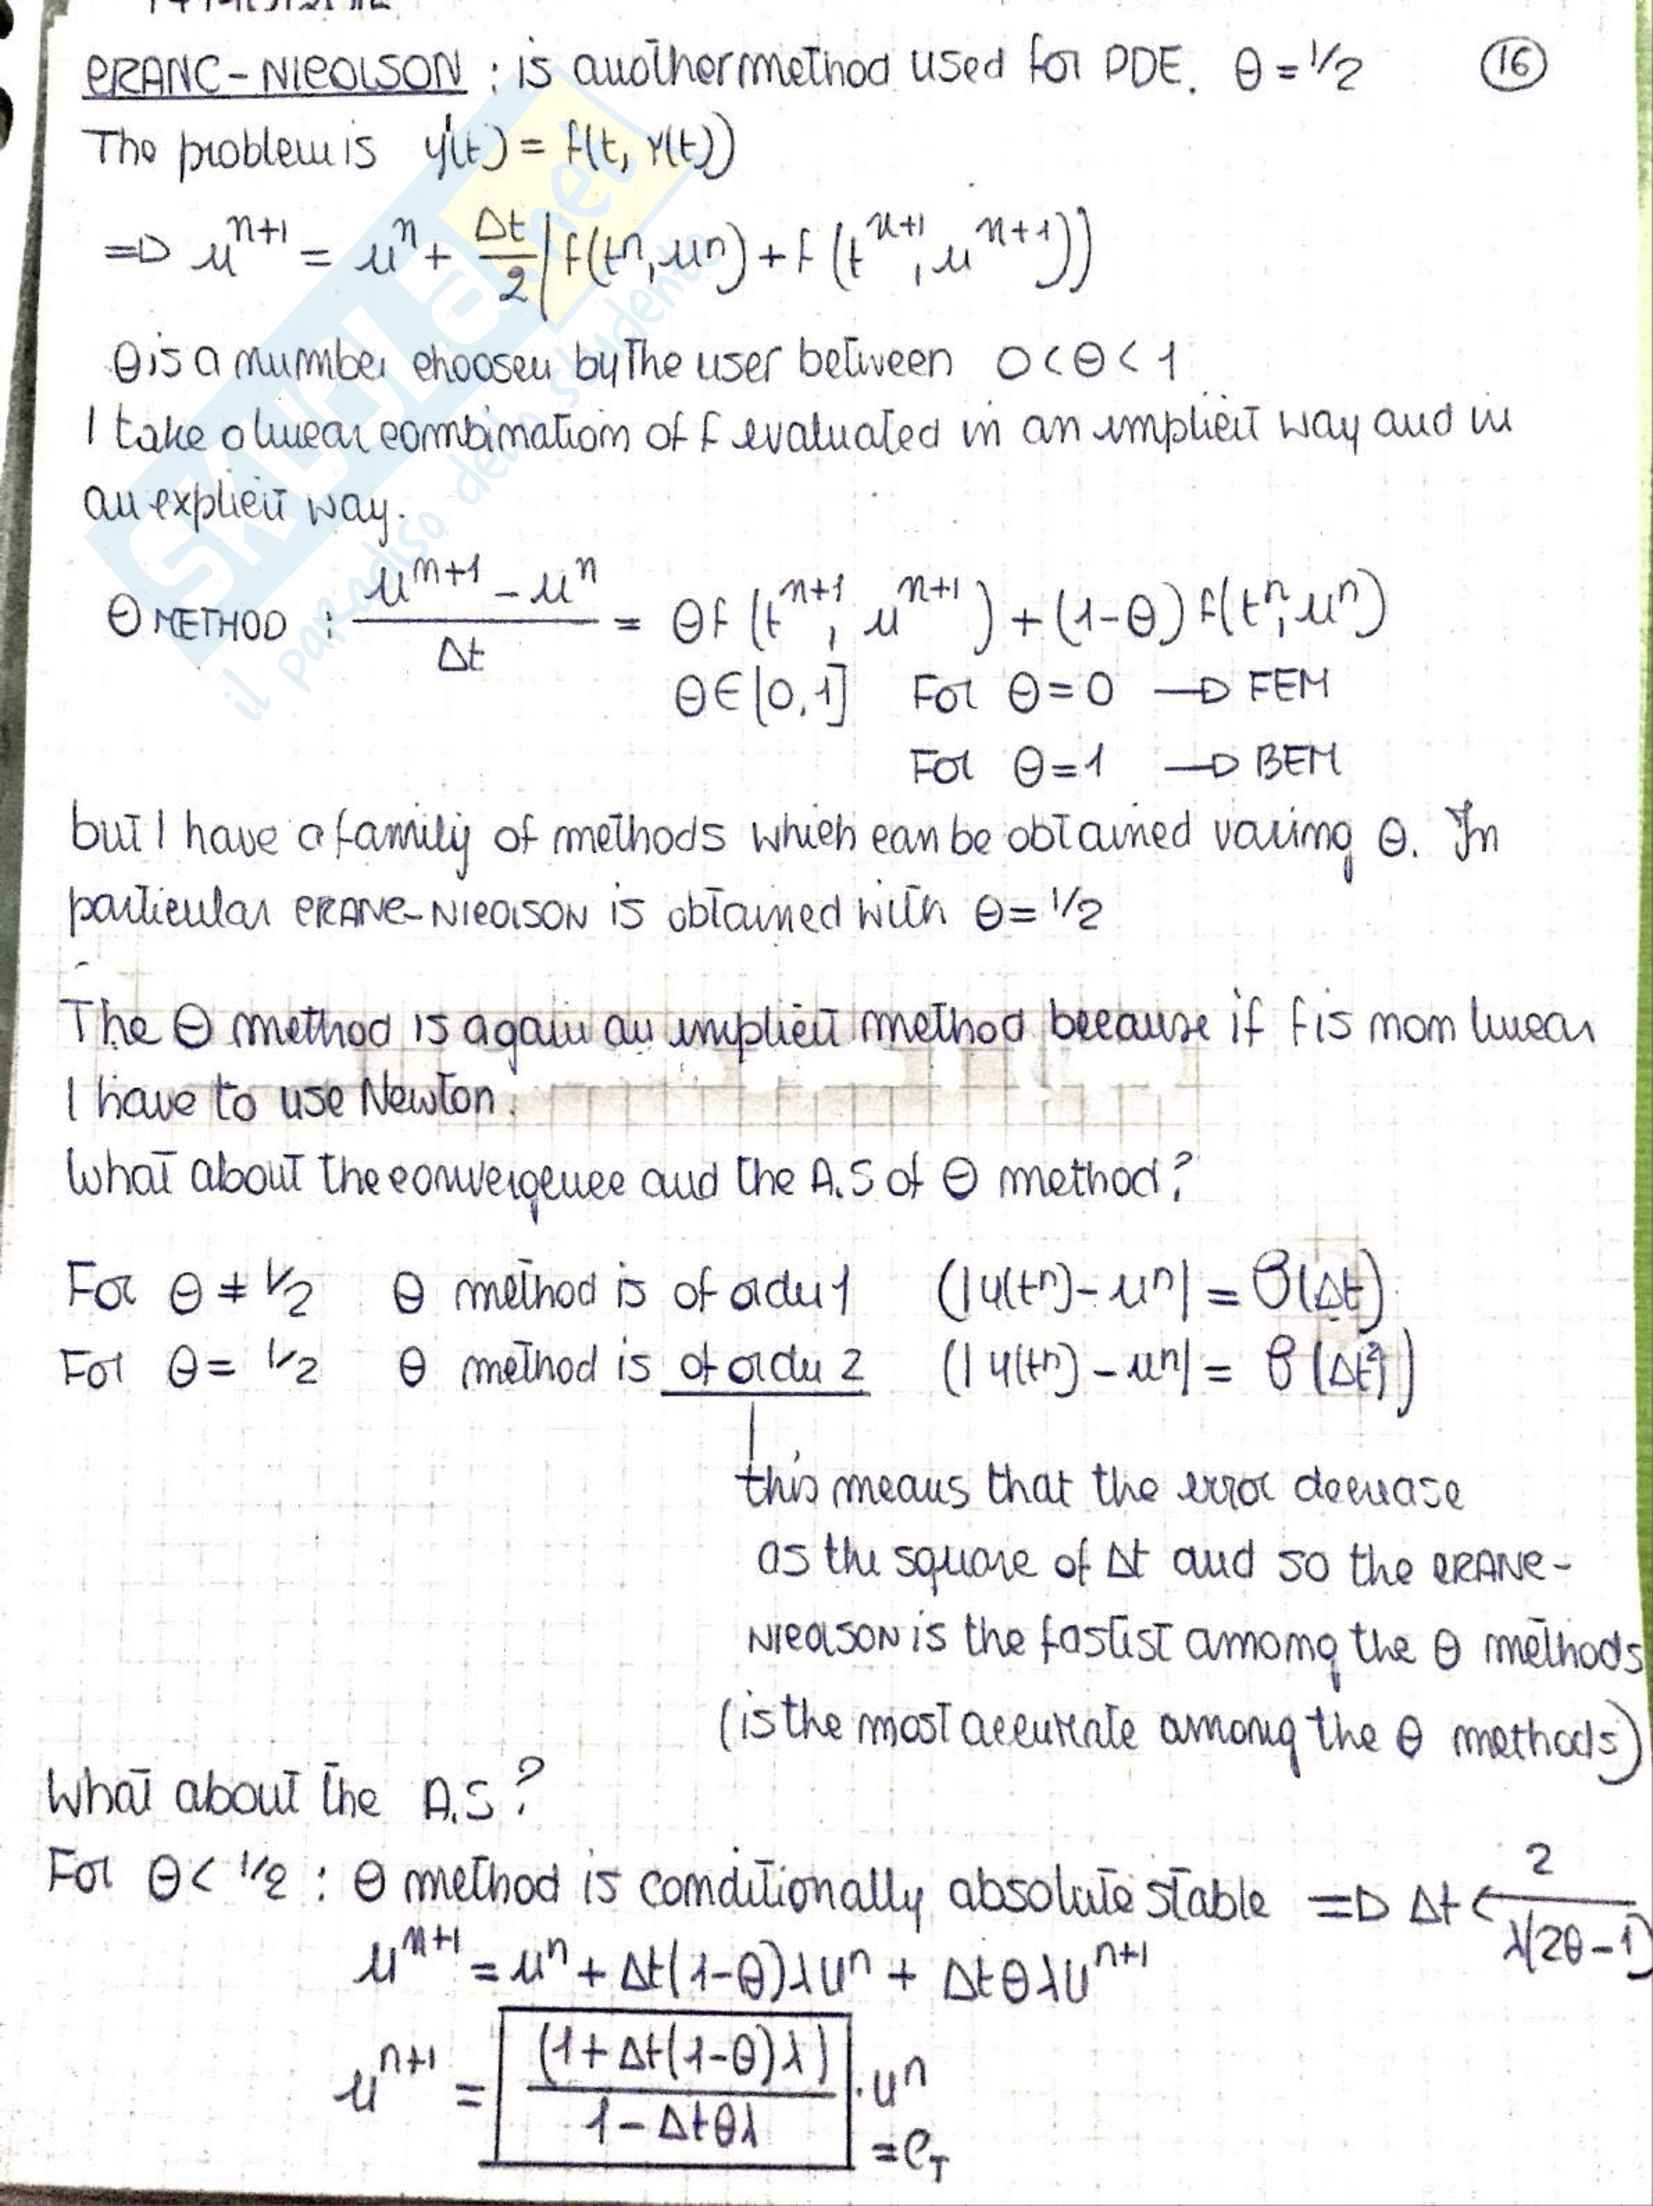 CRANC-NICOLSON : is another method used for PDE. θ = 1/2 (16)
The problem is y'(t) = f(t, y(t))
=> u^{n+1} = u^n + Δt/2 (f(t^n, u^n) + f(t^{n+1}, u^{n+1}))
θ is a number choosen by the user between 0 < θ < 1
I take a linear combination of f evaluated in an implicit way and in
an explicit way.
θ METHOD : (u^{n+1} - u^n)/Δt = θf(t^{n+1}, u^{n+1}) + (1-θ)f(t^n, u^n)
θ∈[0,1] For θ=0 → FEM
For θ=1 → BEM
but I have a family of methods which can be obtained varing θ. In
particular CRANC-NICOLSON is obtained with θ = 1/2
The θ method is again an implicit method because if f is non linear
I have to use Newton.
What about the convergence and the A.S of θ method?
For θ ≠ 1/2 θ method is of order 1 (|y(t^n) - u^n| = O(Δt)
For θ = 1/2 θ method is of order 2 (|y(t^n) - u^n| = O(Δt²))
this means that the error decrease
as the square of Δt and so the CRANC-
NICOLSON is the fastest among the θ methods
(is the most accurate among the θ methods)
What about the A.S?
For θ < 1/2 : θ method is conditionally absolute stable => Δt < 2/(λ(2θ-1)
u^{n+1} = u^n + Δt(1-θ)λu^n + Δtθλu^{n+1}
u^{n+1} = (1+Δt(1-θ)λ)/(1-Δtθλ) · u^n
= C_T
SKUOLA.net
il paradiso dello studente